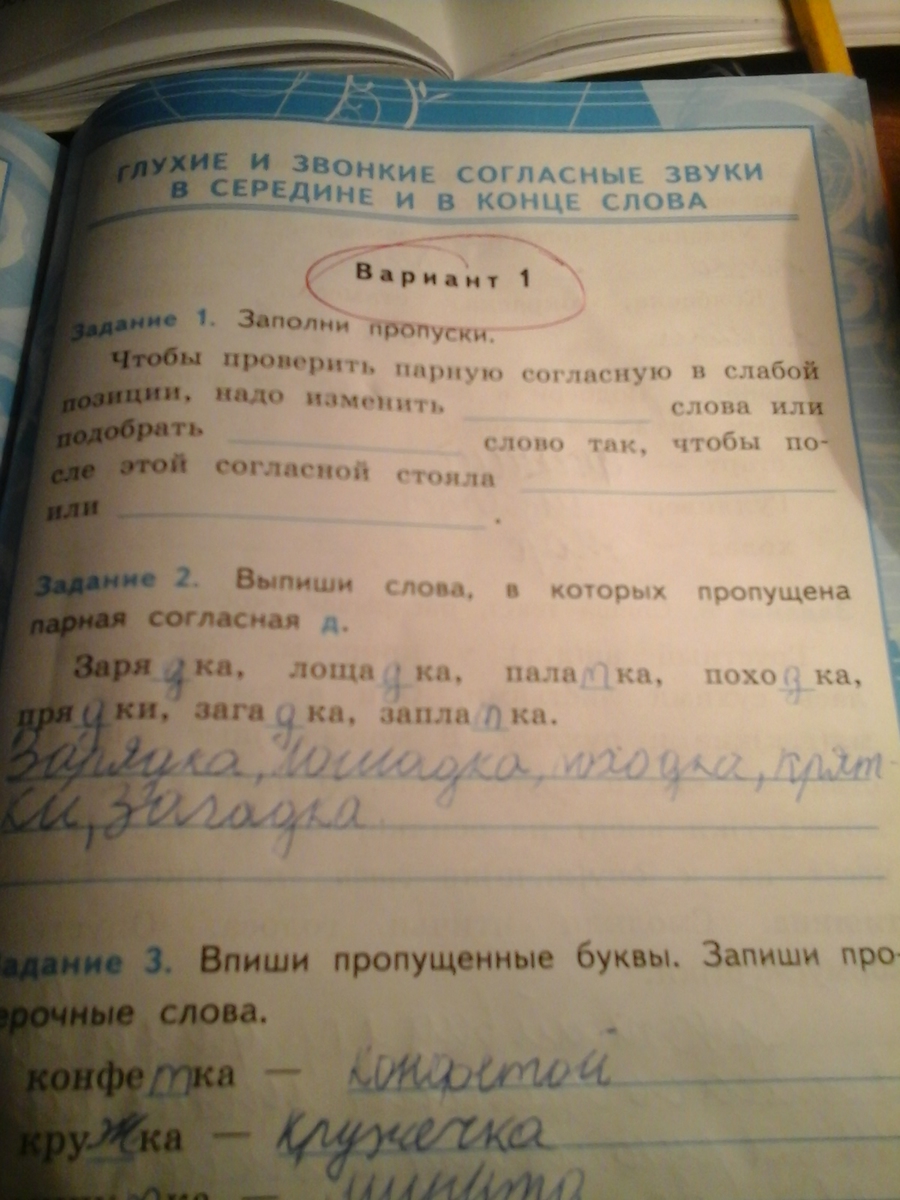 ГЛУХИЕ И ЗВОНКИЕ СОГЛАСНЫЕ ЗВУКИ
В СЕРЕДИНЕ И В КОНЦЕ СЛОВА
Вариант 1
Задание 1. Заполни пропуски.
Чтобы проверить парную согласную в слабой
позиции, надо изменить слова или
подобрать слово так, чтобы по-
сле этой согласной стояла
или .
Задание 2. Выпиши слова, в которых пропущена
парная согласная д.
Зарядка, лощадка, палатка, походка,
прядки, загадка, заплатка.
Зарядка, лошадка, походка, прят-
ки, загадка
адание 3. Впиши пропущенные буквы. Запиши про-
ерочные слова.
конфетка — конфетой
кружка — кружечка
ка —